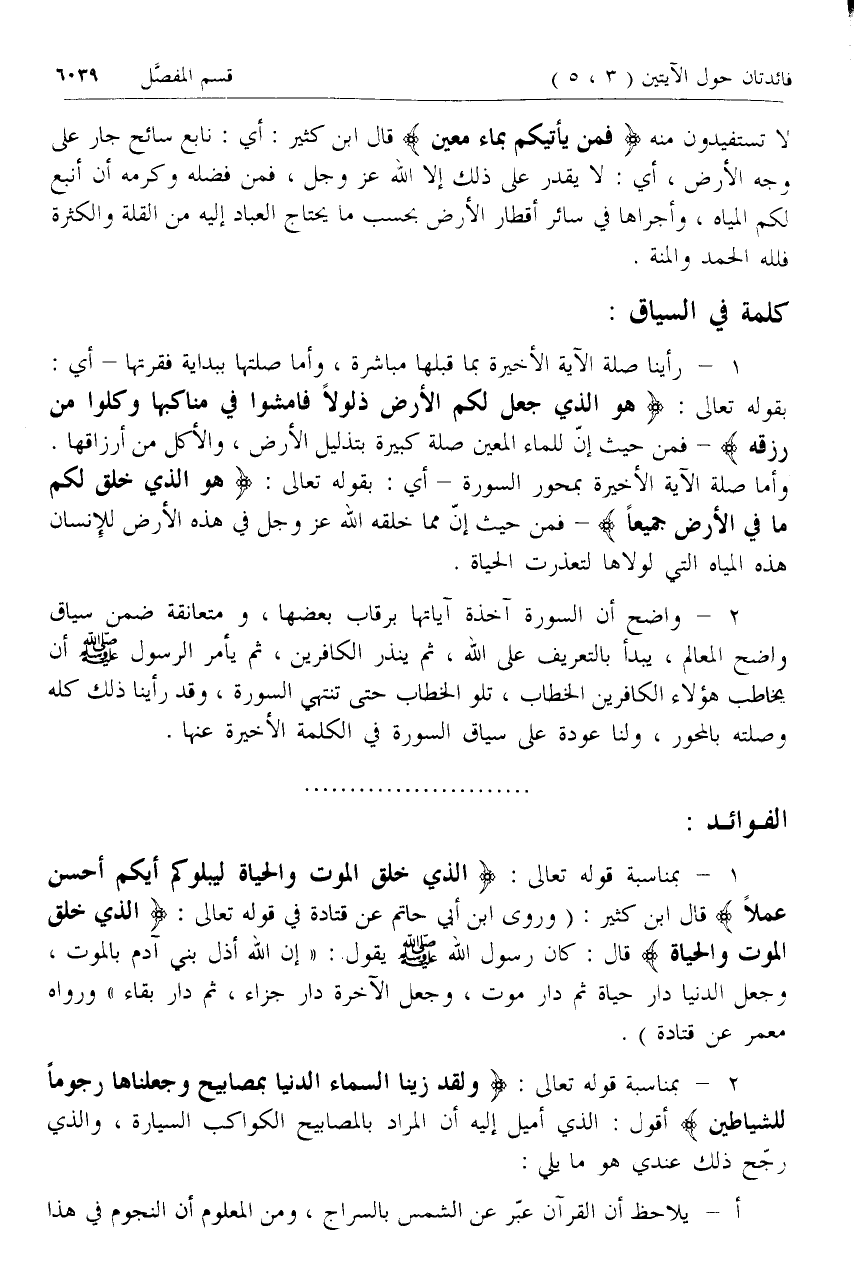 فائدتان حول الآيتين ( ٣ ، ٥ ) قسم المفصَّل ٦٠٣٩
لا تستفيدون منه ﴿ فمن يأتيكم بماء معين ﴾ قال ابن كثير : أي : نابع سائح جار على
وجه الأرض ، أي : لا يقدر على ذلك إلا الله عز وجل ، فمن فضله وكرمه أن أنبع
لكم المياه ، وأجراها في سائر أقطار الأرض بحسب ما يحتاج العباد إليه من القلة والكثرة
فلله الحمد والمنة .
كلمة في السياق :
١ – رأينا صلة الآية الأخيرة بما قبلها مباشرة ، وأما صلتها ببداية فقرتها – أي :
بقوله تعالى : ﴿ هو الذي جعل لكم الأرض ذلولاً فامشوا في مناكبها وكلوا من
رزقه ﴾ – فمن حيث إنّ للماء المعين صلة كبيرة بتذليل الأرض ، والأكل من أرزاقها .
وأما صلة الآية الأخيرة بمحور السورة – أي : بقوله تعالى : ﴿ هو الذي خلق لكم
ما في الأرض جميعاً ﴾ – فمن حيث إنّ مما خلقه الله عز وجل في هذه الأرض للإنسان
هذه المياه التي لولاها لتعذرت الحياة .
٢ – واضح أن السورة آخذة آياتها برقاب بعضها ، و متعانقة ضمن سياق
واضح المعالم ، يبدأ بالتعريف على الله ، ثم ينذر الكافرين ، ثم يأمر الرسول ﷺ أن
يخاطب هؤلاء الكافرين الخطاب ، تلو الخطاب حتى تنتهي السورة ، وقد رأينا ذلك كله
وصلته بالمحور ، ولنا عودة على سياق السورة في الكلمة الأخيرة عنها .
.........................
الفـوائـد :
١ – بمناسبة قوله تعالى : ﴿ الذي خلق الموت والحياة ليبلوكم أيكم أحسن
عملاً ﴾ قال ابن كثير : ( وروى ابن أبي حاتم عن قتادة في قوله تعالى : ﴿ الذي خلق
الموت والحياة ﴾ قال : كان رسول الله ﷺ يقول : « إن الله أذل بني آدم بالموت ،
وجعل الدنيا دار حياة ثم دار موت ، وجعل الآخرة دار جزاء ، ثم دار بقاء » ورواه
معمر عن قتادة ) .
٢ – بمناسبة قوله تعالى : ﴿ ولقد زينا السماء الدنيا بمصابيح وجعلناها رجوماً
للشياطين ﴾ أقول : الذي أميل إليه أن المراد بالمصابيح الكواكب السيارة ، والذي
رجّح ذلك عندي هو ما يلي :
أ – يلاحظ أن القرآن عبّر عن الشمس بالسراج ، ومن المعلوم أن النجوم في هذا